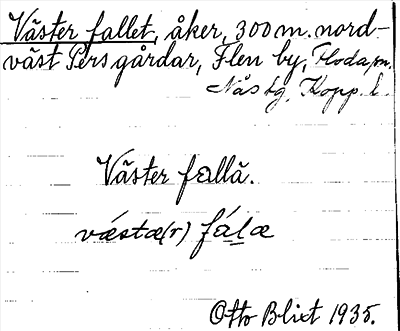 Väster fallet, åker, 300 m. nord-
väst Pers gårdar, Flen by, Floda sn.
Nås tg. Kopp. l.
Väster fallä.
västæ(r) fálæ
Otto Blixt 1935.